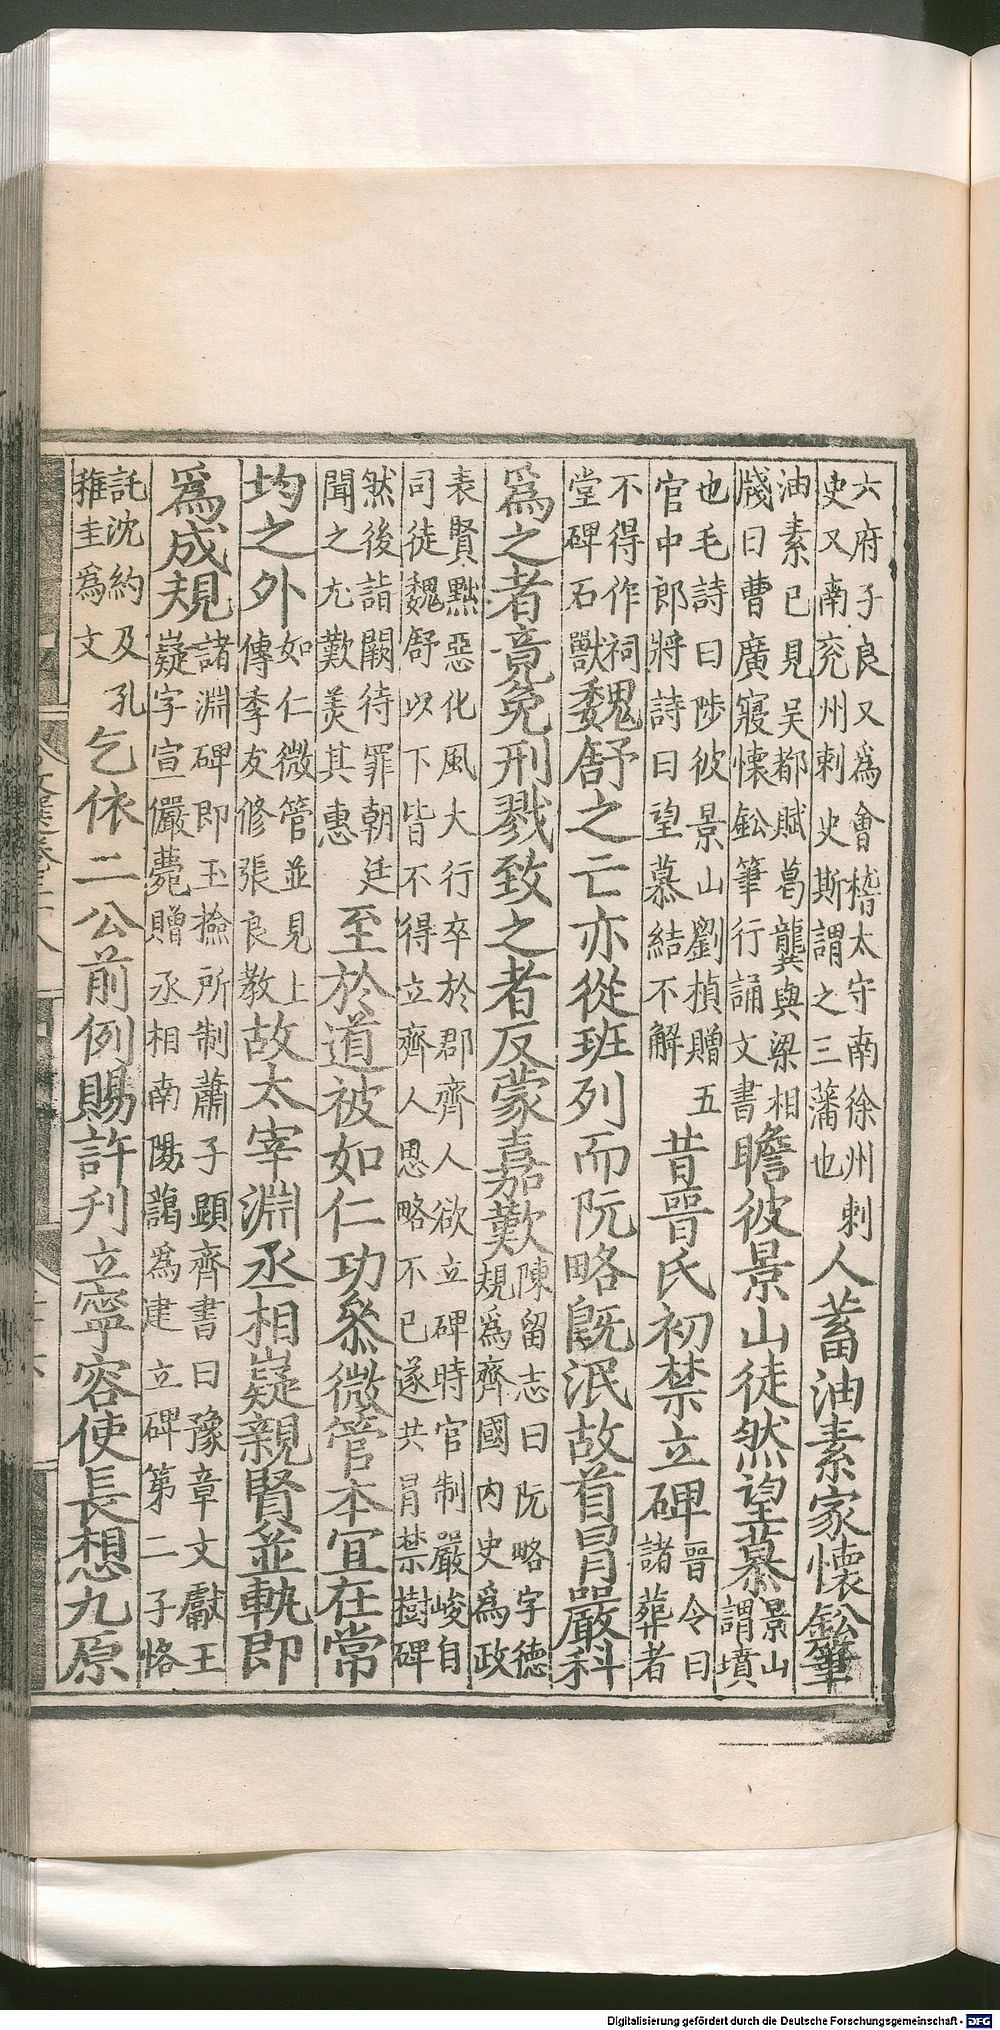 六府子良又為會稽太守南徐州刺
史又南兖州刺史斯謂之三藩也
人蓄油素家懷鈆筆
油素已見吳都賦葛龔與梁相
牋曰曹廣寤懷鈆筆行誦文書
瞻彼景山徒然望慕
景山
謂墳
也毛詩曰陟彼景山劉楨贈五
官中郎將詩曰望慕結不解
昔晉氏初禁立碑
晉令曰
諸葬者
不得作祠
堂碑石獸
魏舒之亡亦從班列而阮略旣泯故首冒嚴科
為之者竟免刑戮致之者反蒙嘉歎
陳留志曰阮略字德
規為齊國内史為政
表賢黜惡化風大行卒於郡齊人欲立碑時官制嚴峻自
司徒魏舒以下皆不得立齊人思略不已遂共冒禁樹碑
然後詣闕待罪朝廷
聞之尢歎羡其惠
至於道被如仁功叅微管本宜在常
均之外
如仁微管並見上
傳季友修張良教
故太宰淵丞相嶷親賢並軌即
為成規
諸淵碑即玉撿所制蕭子顯齊書曰豫章文獻王
嶷字宣儼薨贈丞相南陽藹為建立碑第二子恪
託沈約及孔
稚圭為文
乞依二公前例賜許刋立寧容使長想九原
Digitalisierung gefördert durch die Deutsche Forschungsgemeinschaft - DFG